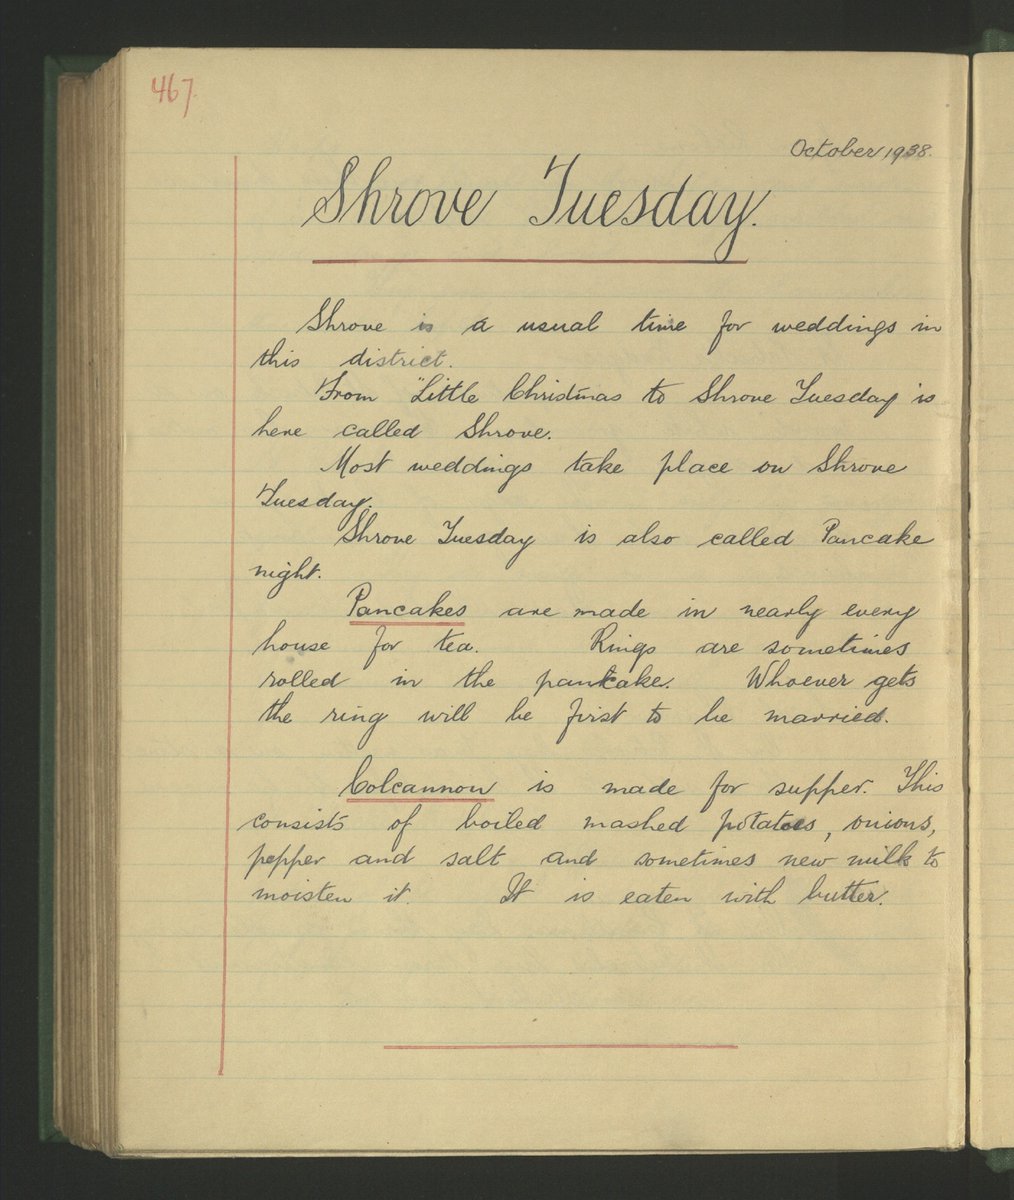 467.
October 1938.
Shrove Tuesday.
Shrove is a usual time for weddings in
this district.
From "Little Christmas to Shrove Tuesday is
here called Shrove.
Most weddings take place on Shrove
Tuesday.
Shrove Tuesday is also called Pancake
night.
Pancakes are made in nearly every
house for tea. Rings are sometimes
rolled in the pancake. Whoever gets
the ring will be first to be married.
Colcannon is made for supper. This
consists of boiled mashed potatoes, onions,
pepper and salt and sometimes new milk to
moisten it. It is eaten with butter.